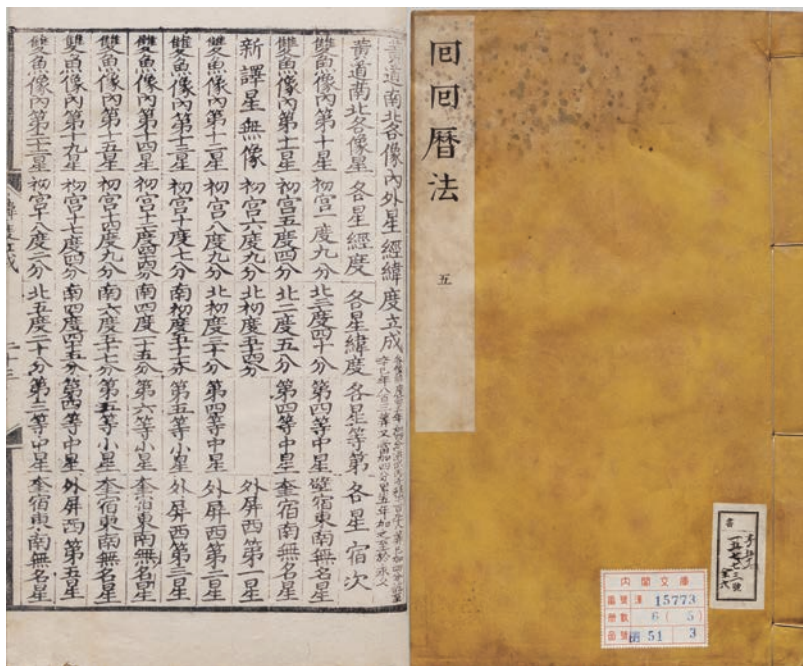 囘囘曆法
五
內閣文庫
番號 漢 15773
冊數 6 (5)
函號 別 51 3
黃道南北各像內外星經緯度立成
黃道南北各像星 各星經度 各星緯度 各星等第 各星宿次
雙魚像內第十星 初宮一度九分 北三度四十分 第四等中星 壁宿東南無名星
雙魚像內第十一星 初宮五度四分 北二度五分 第四等中星 奎宿南無名星
新譯星無像 初宮六度九分 北初度五十四分 外屏西第一星
雙魚像內第十二星 初宮八度九分 北初度三十分 第四等中星 外屏西第二星
雙魚像內第十三星 初宮十度七分 南初度五十七分 第五等小星 外屏西第三星
雙魚像內第十四星 初宮十二度四十四分 南四度二十五分 第六等小星 奎宿東南無名星
雙魚像內第十五星 初宮十四度九分 南六度五十七分 第五等小星 奎宿東南無名星
雙魚像內第十九星 初宮十七度四分 南四度四十五分 第四等中星 外屏西第五星
雙魚像內 初宮十八度二分 北五度二十分 等中星 奎宿東南無名星
緯度立成